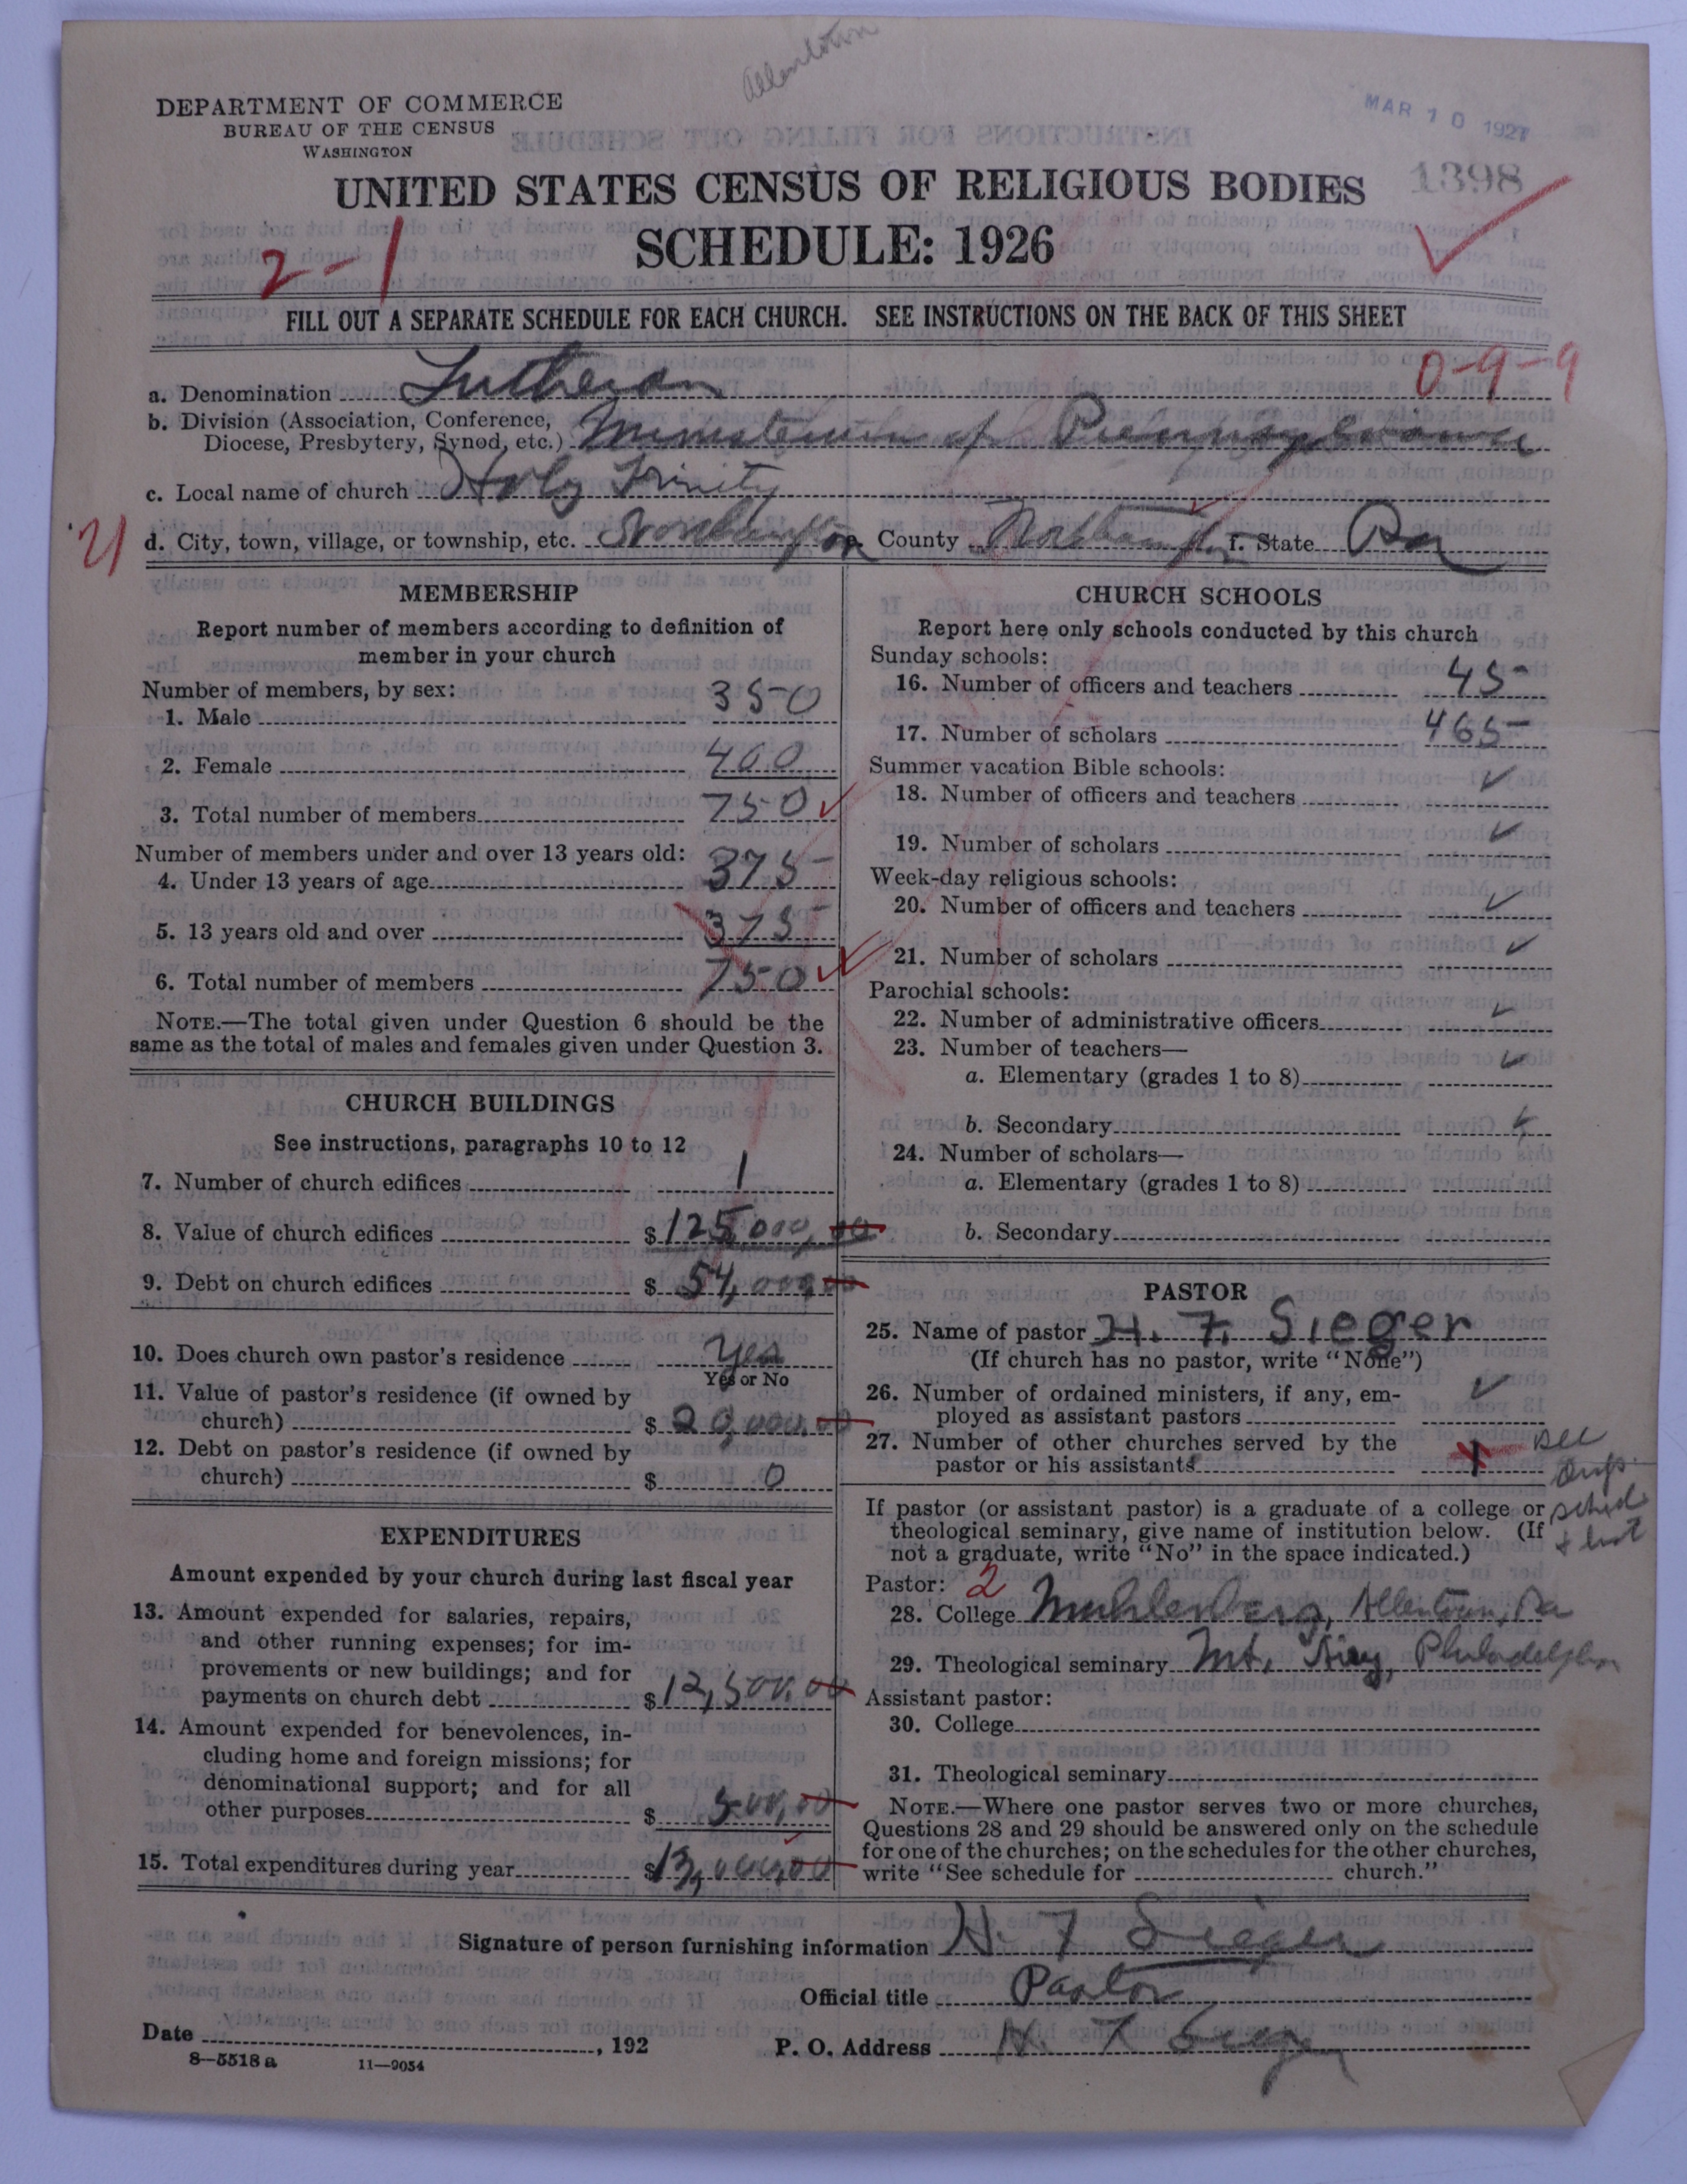 Allentown
DEPARTMENT OF COMMERCE
BUREAU OF THE CENSUS
WASHINGTON
MAR 10 1927
1398
UNITED STATES CENSUS OF RELIGIOUS BODIES
SCHEDULE: 1926
2-1
FILL OUT A SEPARATE SCHEDULE FOR EACH CHURCH. SEE INSTRUCTIONS ON THE BACK OF THIS SHEET
0-9-9
a. Denomination Lutheran
b. Division (Association, Conference,
Diocese, Presbytery, Synod, etc.) Ministerium of Pennsylvania
c. Local name of church Holy Trinity
21
d. City, town, village, or township, etc. Northampton e. County Northampton f. State Pa
MEMBERSHIP
Report number of members according to definition of
member in your church
Number of members, by sex:
1. Male 350
2. Female 400
3. Total number of members 750
Number of members under and over 13 years old:
4. Under 13 years of age 375
5. 13 years old and over 375
6. Total number of members 750
NOTE.—The total given under Question 6 should be the
same as the total of males and females given under Question 3.
CHURCH BUILDINGS
See instructions, paragraphs 10 to 12
7. Number of church edifices 1
8. Value of church edifices $125,000,00
9. Debt on church edifices $54,000,00
10. Does church own pastor's residence Yes
Yes or No
11. Value of pastor's residence (if owned by
church) $20,000.00
12. Debt on pastor's residence (if owned by
church) $0
EXPENDITURES
Amount expended by your church during last fiscal year
13. Amount expended for salaries, repairs,
and other running expenses; for im-
provements or new buildings; and for
payments on church debt $12,500.00
14. Amount expended for benevolences, in-
cluding home and foreign missions; for
denominational support; and for all
other purposes $500,00
15. Total expenditures during year $13,000,00
CHURCH SCHOOLS
Report here only schools conducted by this church
Sunday schools:
16. Number of officers and teachers 45
17. Number of scholars 465
Summer vacation Bible schools:
18. Number of officers and teachers ✓
19. Number of scholars ✓
Week-day religious schools:
20. Number of officers and teachers ✓
21. Number of scholars ✓
Parochial schools:
22. Number of administrative officers ✓
23. Number of teachers—
a. Elementary (grades 1 to 8) ✓
b. Secondary ✓
24. Number of scholars—
a. Elementary (grades 1 to 8)
b. Secondary
PASTOR
25. Name of pastor H. F. Sieger
(If church has no pastor, write "None")
26. Number of ordained ministers, if any, em-
ployed as assistant pastors ✓
27. Number of other churches served by the
pastor or his assistants 1 see
sched
+ list
If pastor (or assistant pastor) is a graduate of a college or
theological seminary, give name of institution below. (If
not a graduate, write "No" in the space indicated.)
Pastor: 2
28. College Muhlenberg, Allentown, Pa
29. Theological seminary Mt. Airy, Philadelphia
Assistant pastor:
30. College
31. Theological seminary
NOTE.—Where one pastor serves two or more churches,
Questions 28 and 29 should be answered only on the schedule
for one of the churches; on the schedules for the other churches,
write "See schedule for church."
Signature of person furnishing information H. F Sieger
Official title Pastor
Date , 192 P. O. Address H. F Sieger
8—5518 a 11—9054